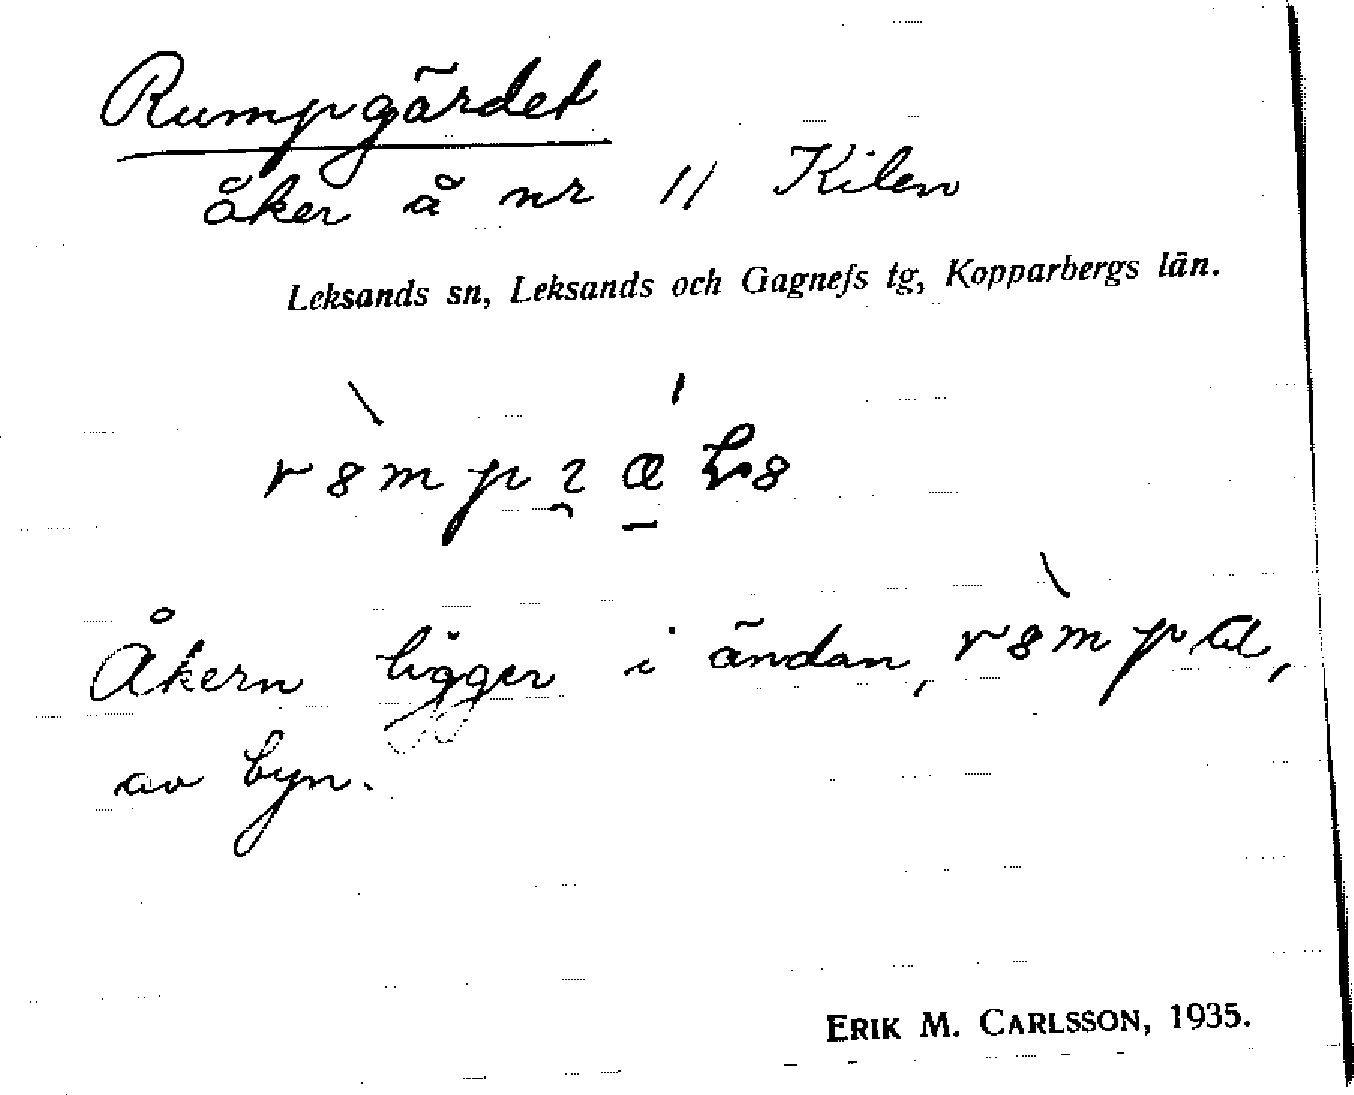 Rumpgärdet
åker å nr 11 Kilen
Leksands sn, Leksands och Gagnefs tg, Kopparbergs län.
Åkern ligger i ändan,
av byn.
ERIK M. CARLSSON, 1935.